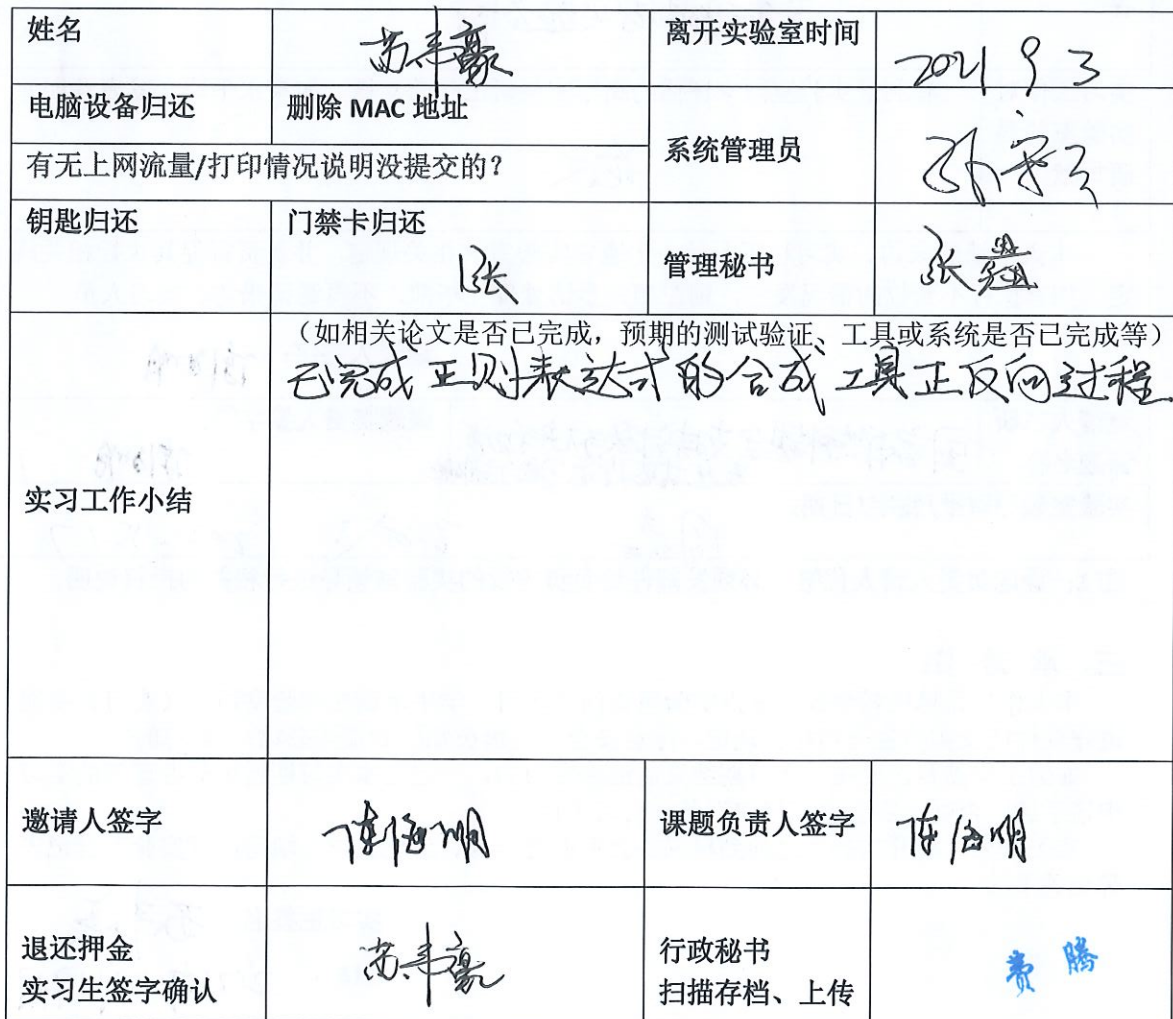 姓名
苏韦豪
离开实验室时间
2021 9 3
电脑设备归还
删除 MAC 地址
有无上网流量/打印情况说明没提交的？
系统管理员
钥匙归还
门禁卡归还
1张
管理秘书
张
实习工作小结
（如相关论文是否已完成，预期的测试验证、工具或系统是否已完成等）
已完成正则表达式的合成工具正反向过程
邀请人签字
陈海明
课题负责人签字
陈海明
退还押金
实习生签字确认
苏韦豪
行政秘书
扫描存档、上传
费腾